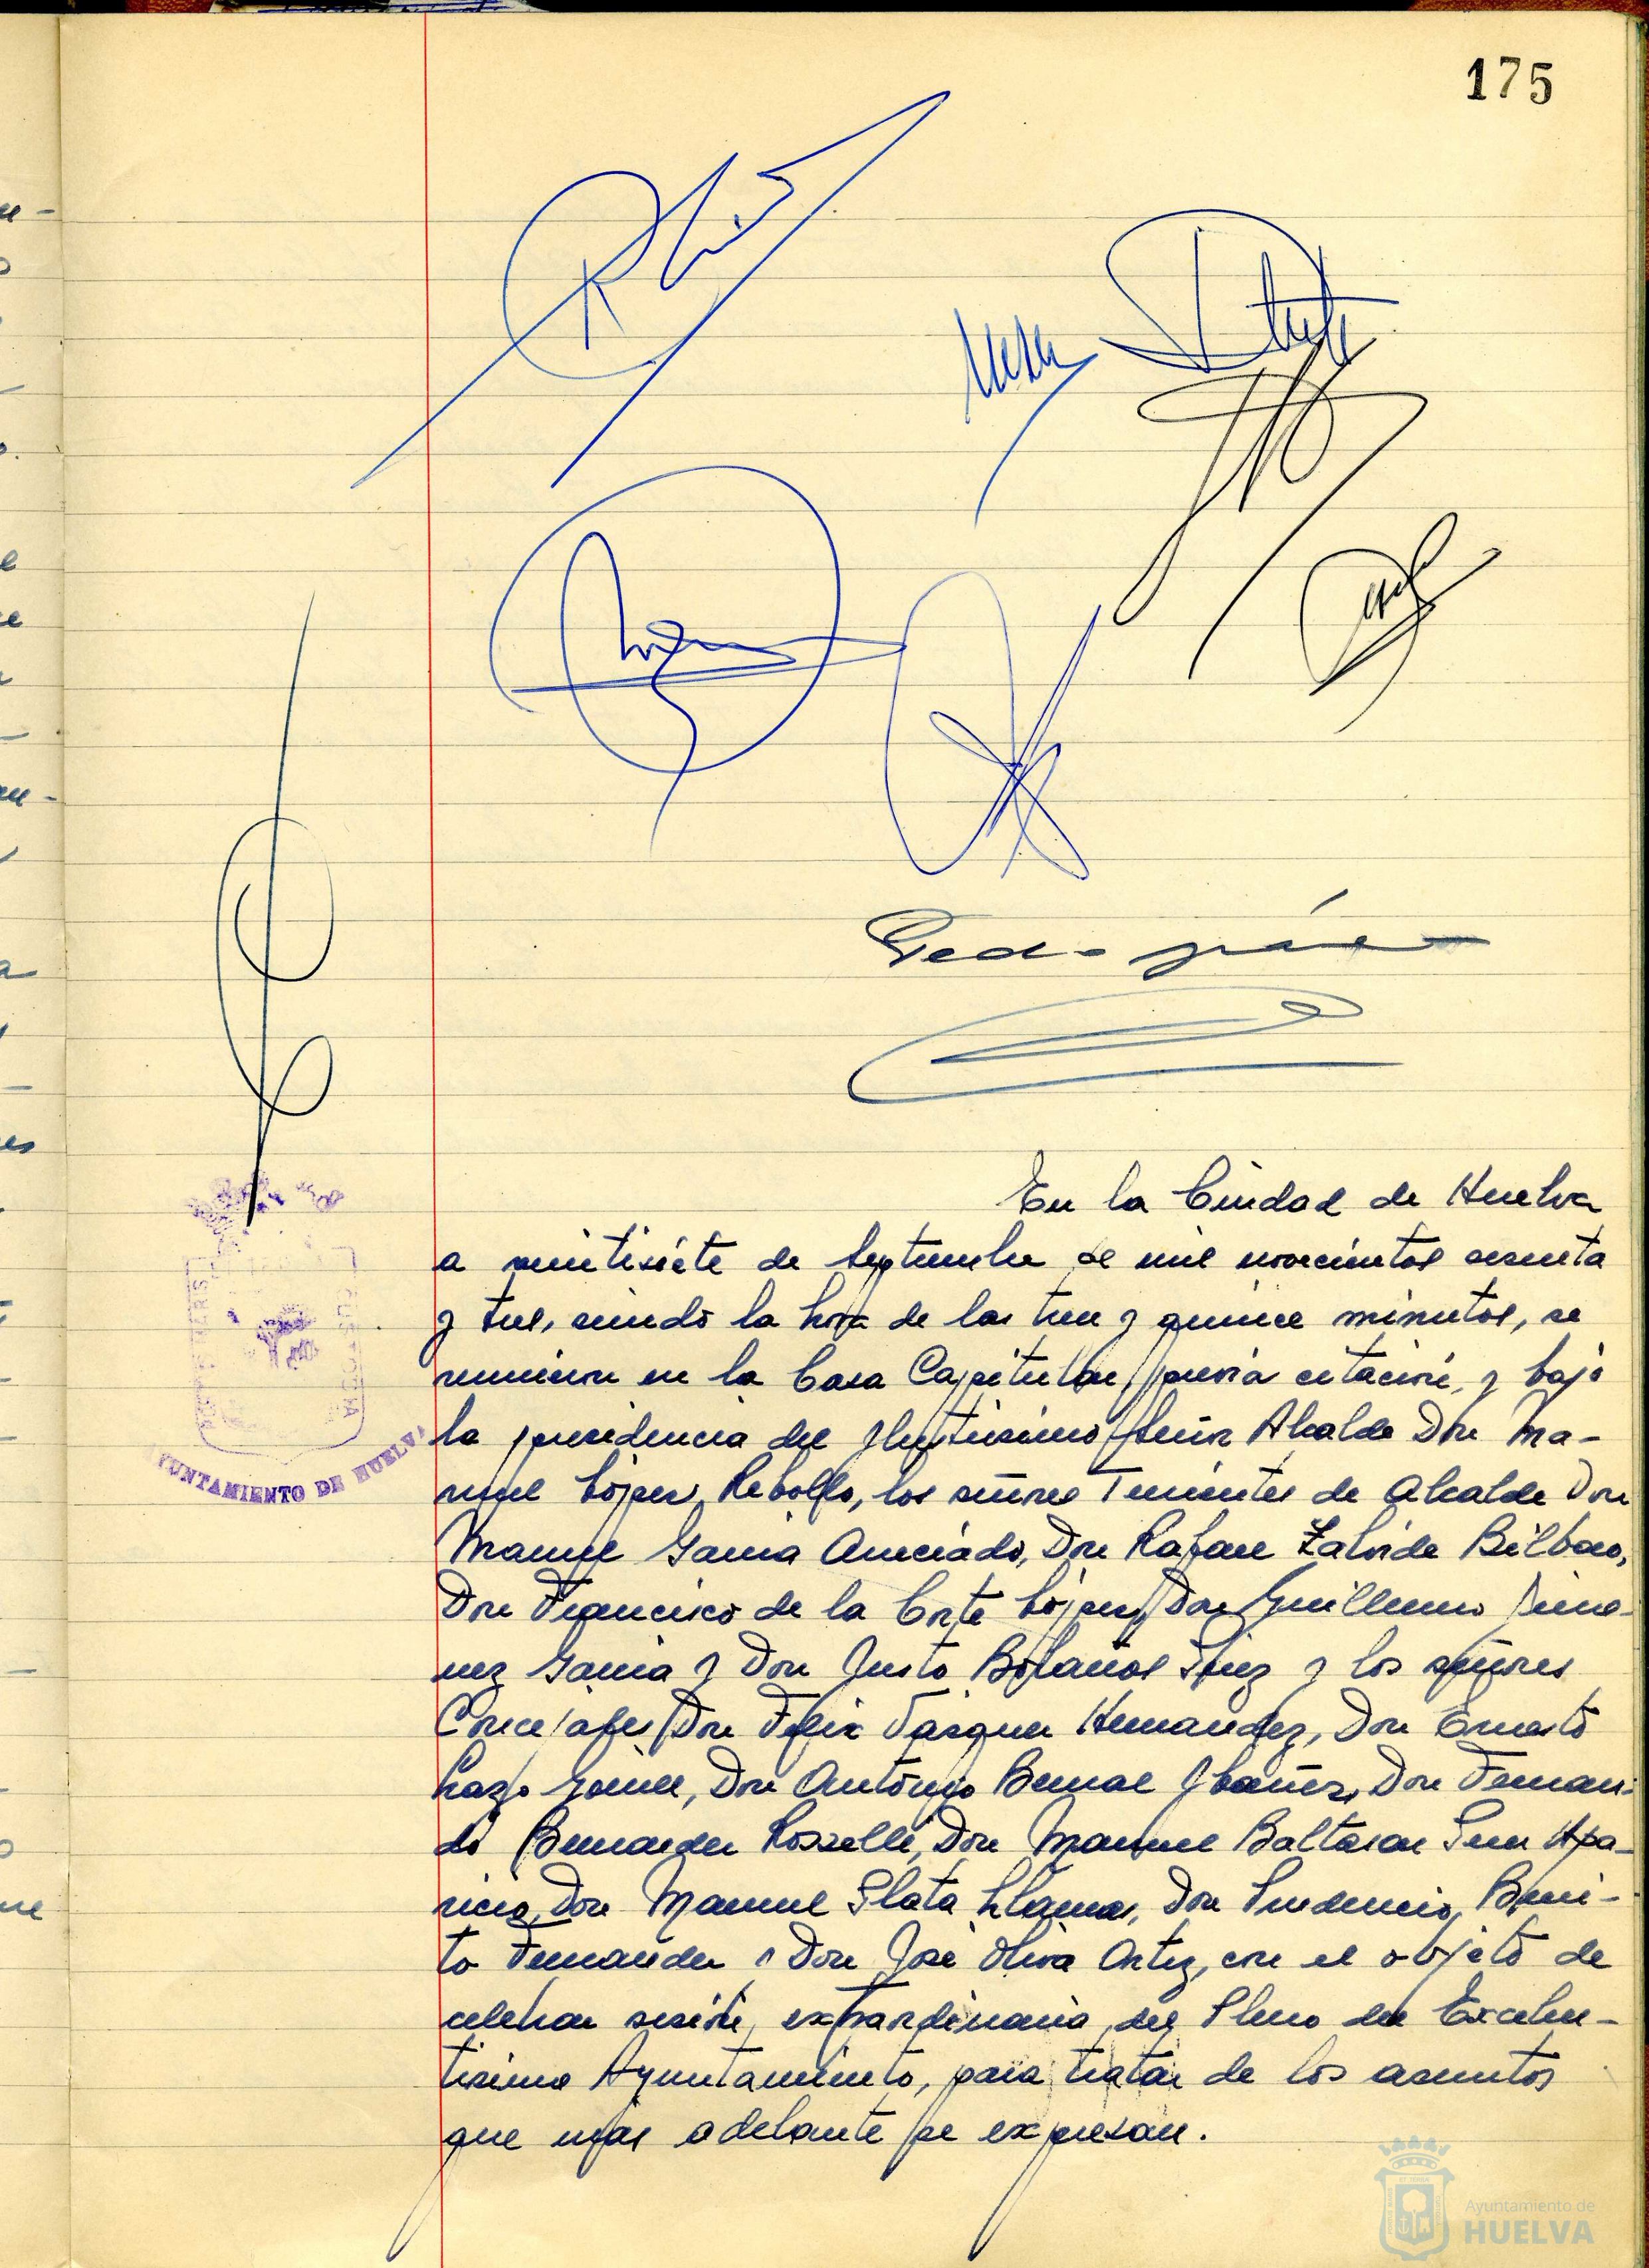 175
En la Ciudad de Huelva
a veintisiete de Septiembre de mil novecientos sesenta
y tres, siendo la hora de las trece y quince minutos, se
reunieron en la Casa Capitular, previa citación, y bajo
la presidencia del Ilustrísimo Señor Alcalde Don Ma-
nuel López Rebollo, los señores Tenientes de Alcalde Don
Manuel García Don Rafael Zalvide Bilbao,
Don Francisco de la Corte López, Don Guillermo Jime-
nez García y Don Justo Bolaños y los señores
Concejales Don Felix Vázquez Hernandez, Don Ernesto
Lazo Don Antonio Bernal Ibañez, Don Fernan-
do Bernardez Rosselló, Don Manuel Baltasar Apa-
ricio, Don Manuel Plata Llamas, Don Prudencio Beni-
to Fernandez y Don José Oliva Ortiz, con el objeto de
celebrar sesión extraordinaria del Pleno del Excelen-
tísimo Ayuntamiento, para tratar de los asuntos
que más adelante se expresan.
AYUNTAMIENTO DE HUELVA
Ayuntamiento de
HUELVA